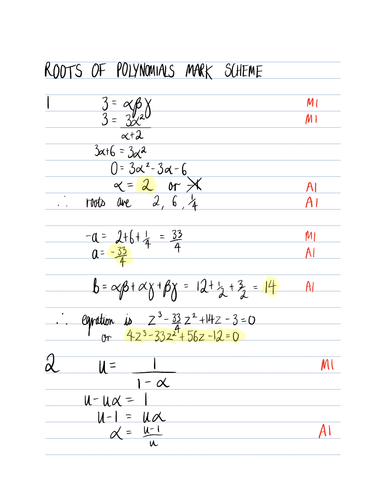 ROOTS OF POLYNOMIALS MARK SCHEME
1 3 = αβγ M1
3 = 3α²/(α+2) M1
3α+6 = 3α²
0 = 3α²-3α-6
α = 2 or -1 A1
∴ roots are 2, 6, 1/4 A1
-a = 2+6+1/4 = 33/4 M1
a = -33/4 A1
b = αβ+αγ+βγ = 12+1/2+3/2 = 14 A1
∴ equation is z³-33/4 z²+14z-3=0
or 4z³-33z²+56z-12=0
2 u = 1/(1-α) M1
u-uα = 1
u-1 = uα
α = (u-1)/u A1